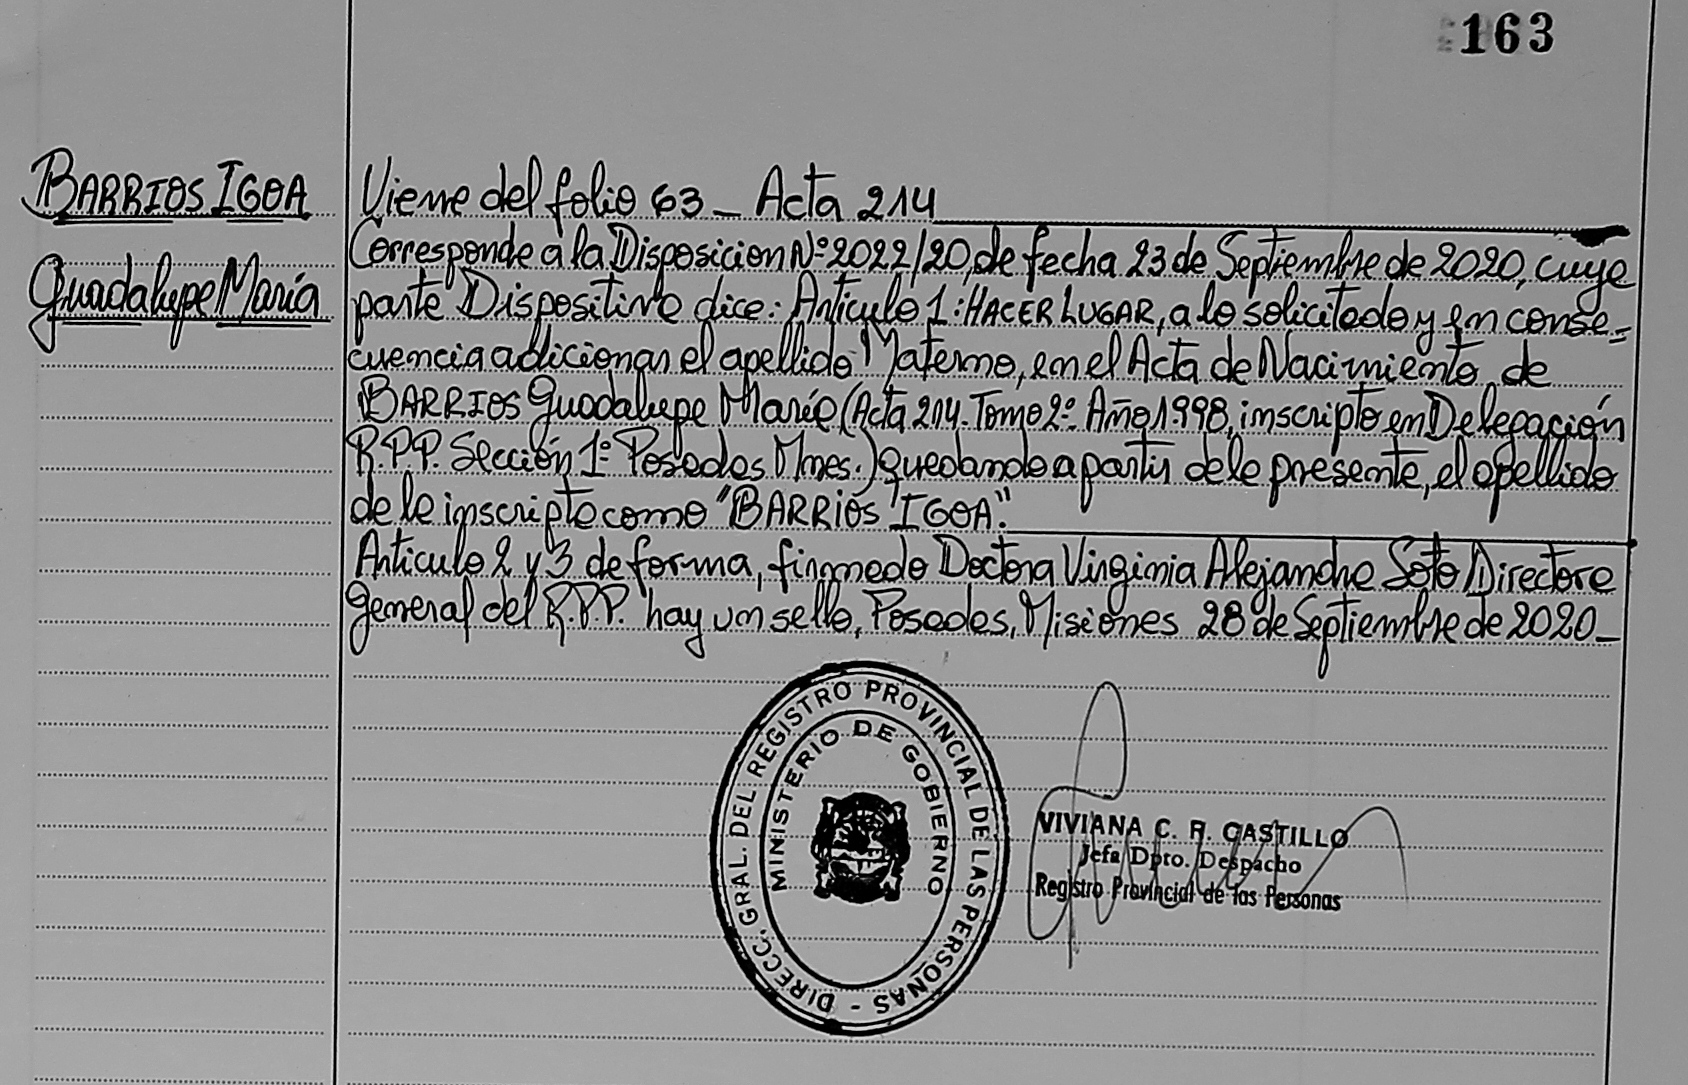 163
BARRIOS IGOA
Guadalupe María
Viene del folio 63 - Acta 214
Corresponde a la Disposicion Nº 2022/20, de fecha 23 de Septiembre de 2020, cuya
parte Dispositiva dice: Articulo 1: HACER LUGAR, a lo solicitado y en conse=
cuencia adicionar el apellido Materno, en el Acta de Nacimiento, de
BARRIOS Guadalupe María (Acta 214. Tomo 2º Año 1998, inscripto en Delegación
R.P.P. Sección 1º Posadas Mnes.) quedando a partir de la presente, el apellido
de la inscripta como "BARRIOS IGOA".
Articulo 2 y 3 de forma, firmado Doctora Virginia Alejandra Soto Directora
General del R.P.P. hay un sello, Posadas, Misiones 28 de Septiembre de 2020-
DIRECC. GRAL. DEL REGISTRO PROVINCIAL DE LAS PERSONAS -
MINISTERIO DE GOBIERNO
VIVIANA C. R. CASTILLO
Jefa Dpto. Despacho
Registro Provincial de las Personas